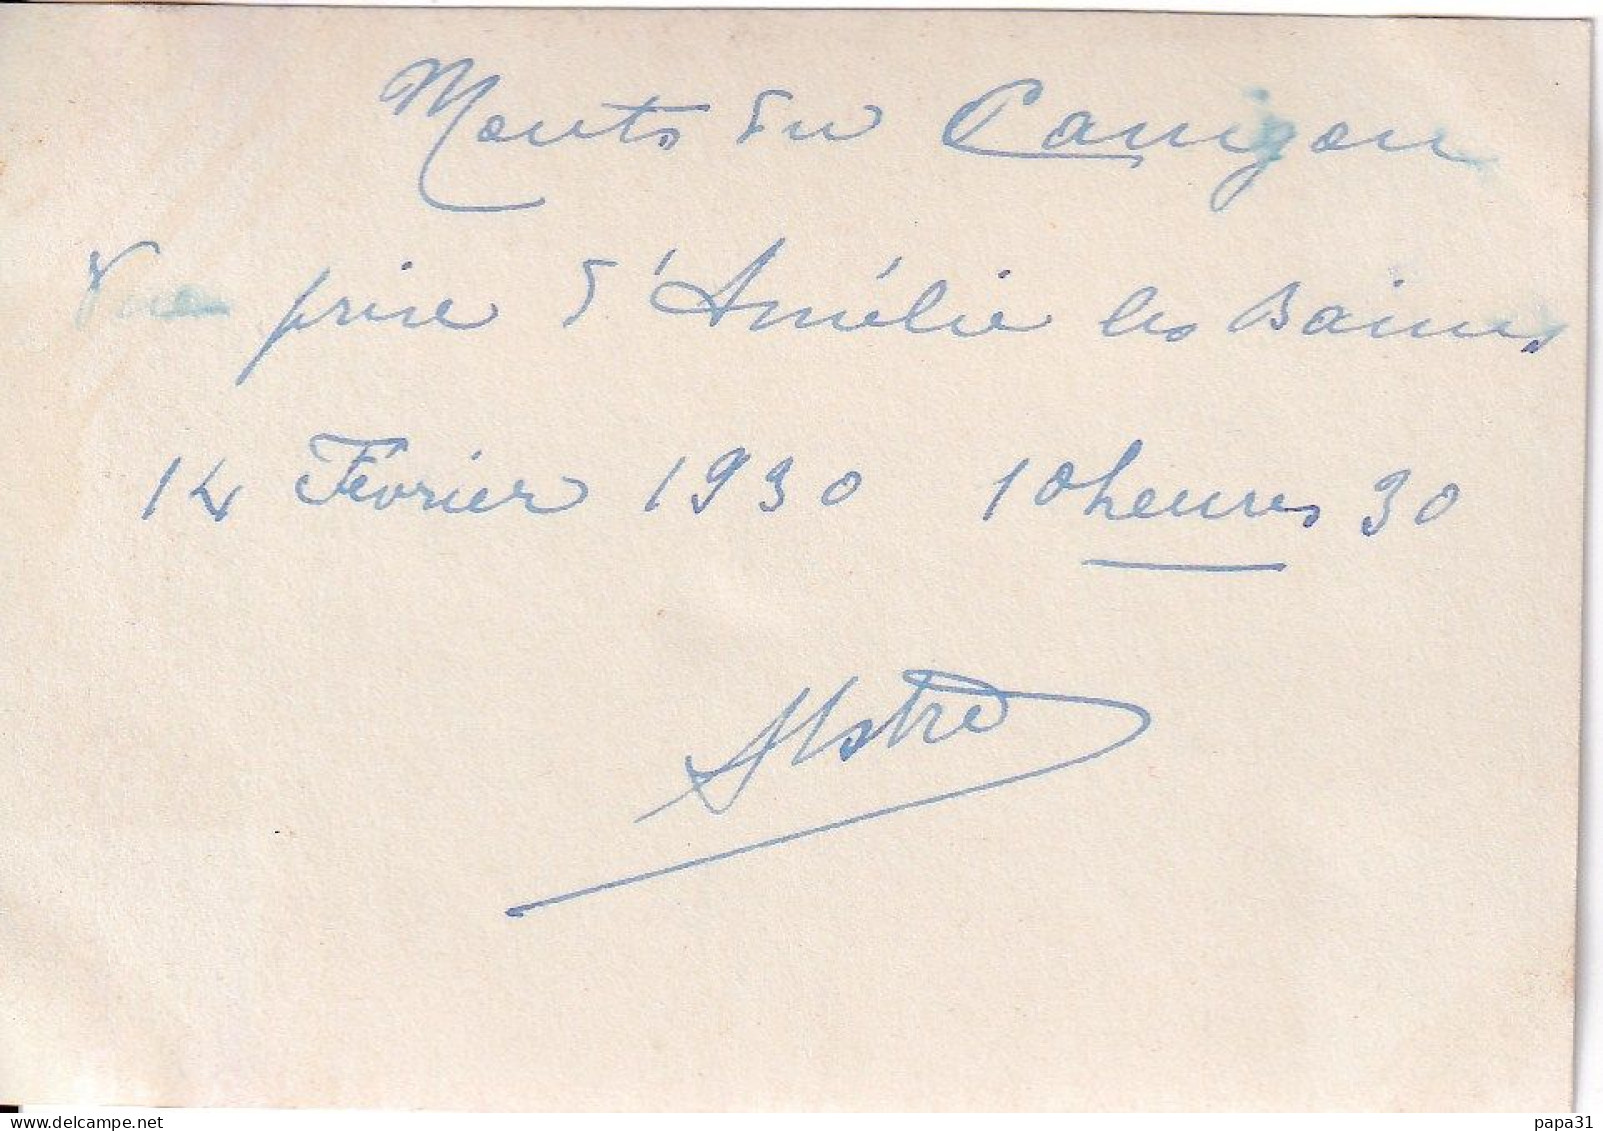 Monts du Canigou
Vue prise d'Amélie les Bains
14 Février 1930 10 heures 30
Astre
delcampe.net
papa31